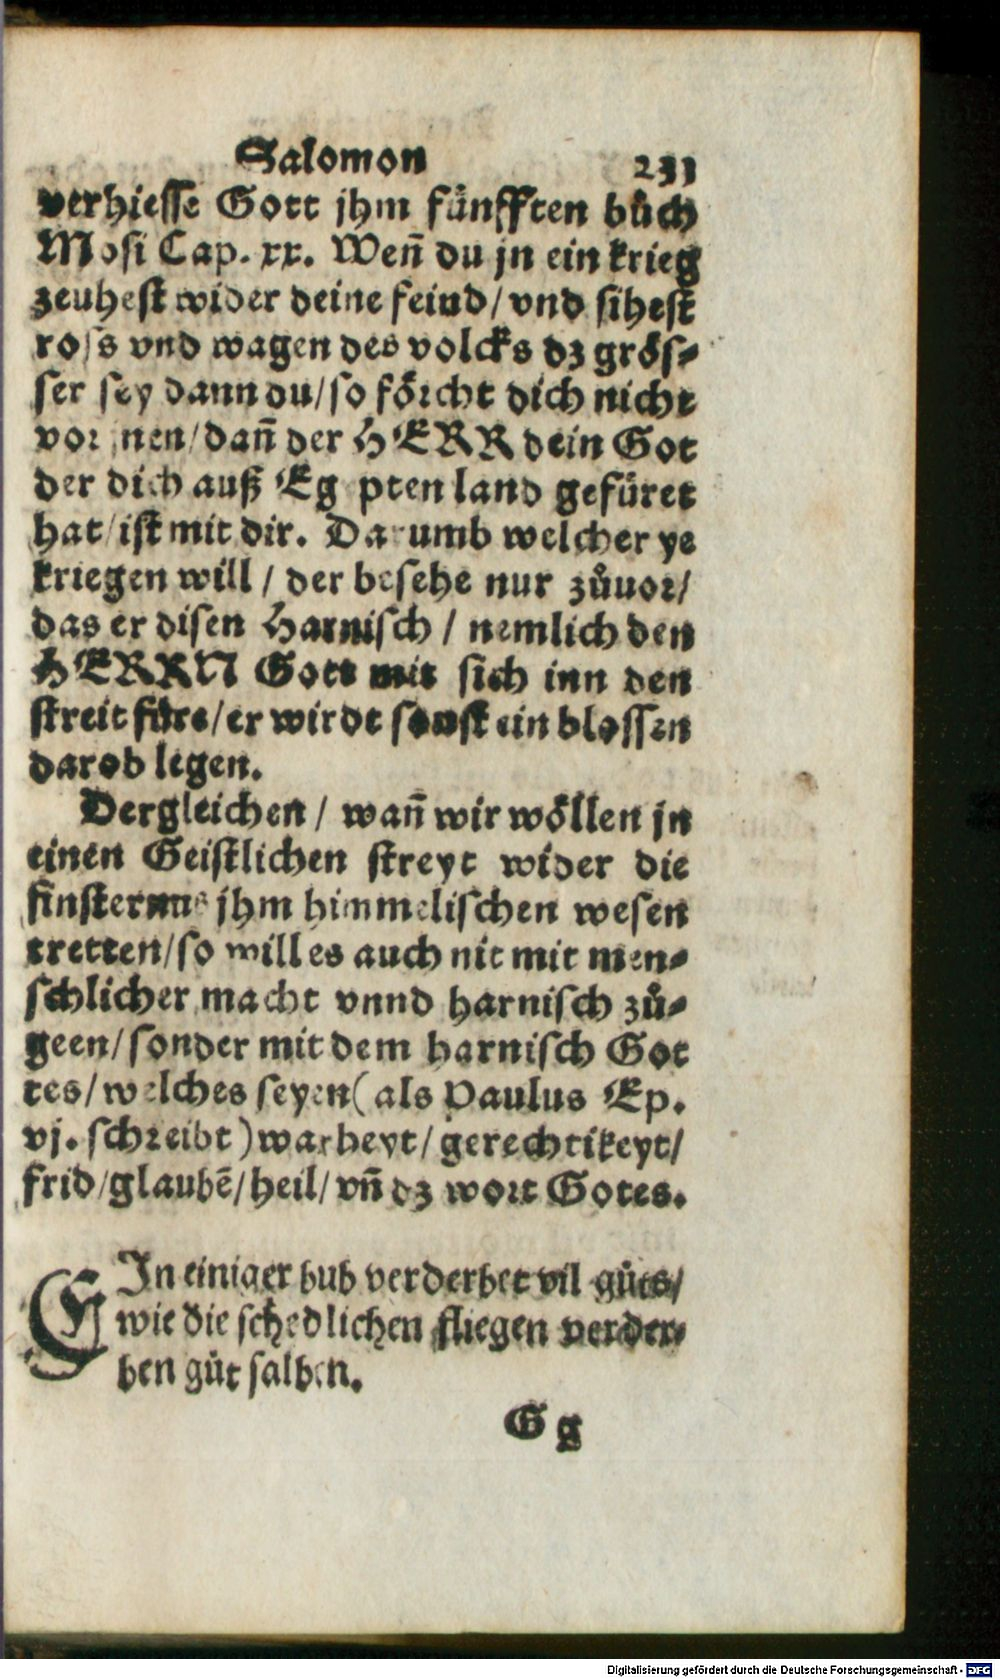 Salomon 233
verhiesse Gott jhm fünfften bůch
Mosi Cap. xx. Weñ du jn ein krieg
zeuhest wider deine feind / vnd sihest
ross vnd wagen des volcks dz grös⸗
ser sey dann du / so förcht dich nicht
vor jnen / dañ der HERR dein Got
der dich auß Eg pten land gefüret
hat / ist mit dir. Darumb welcher ye
kriegen will / der besehe nur zůuor /
das er disen Harnisch / nemlich den
HERRN Gott mit sich inn den
streit füre / er wirdt sonst ein blossen
darob legen.
Dergleichen / wañ wir wöllen jn
einen Geistlichen streyt wider die
finsternus jhm himmelischen wesen
tretten / so will es auch nit mit men⸗
schlicher macht vnnd harnisch zů⸗
geen / sonder mit dem harnisch Got
tes / welches seyen ( als Paulus Ep.
vj. schreibt ) warheyt / gerechtikeyt /
frid / glaubẽ / heil / vñ dz wort Gotes.
EIn einiger bub verderbet vil gůts /
wie die schedlichen fliegen verder⸗
ben gůt salben.
G g
Digitalisierung gefördert durch die Deutsche Forschungsgemeinschaft - DFG